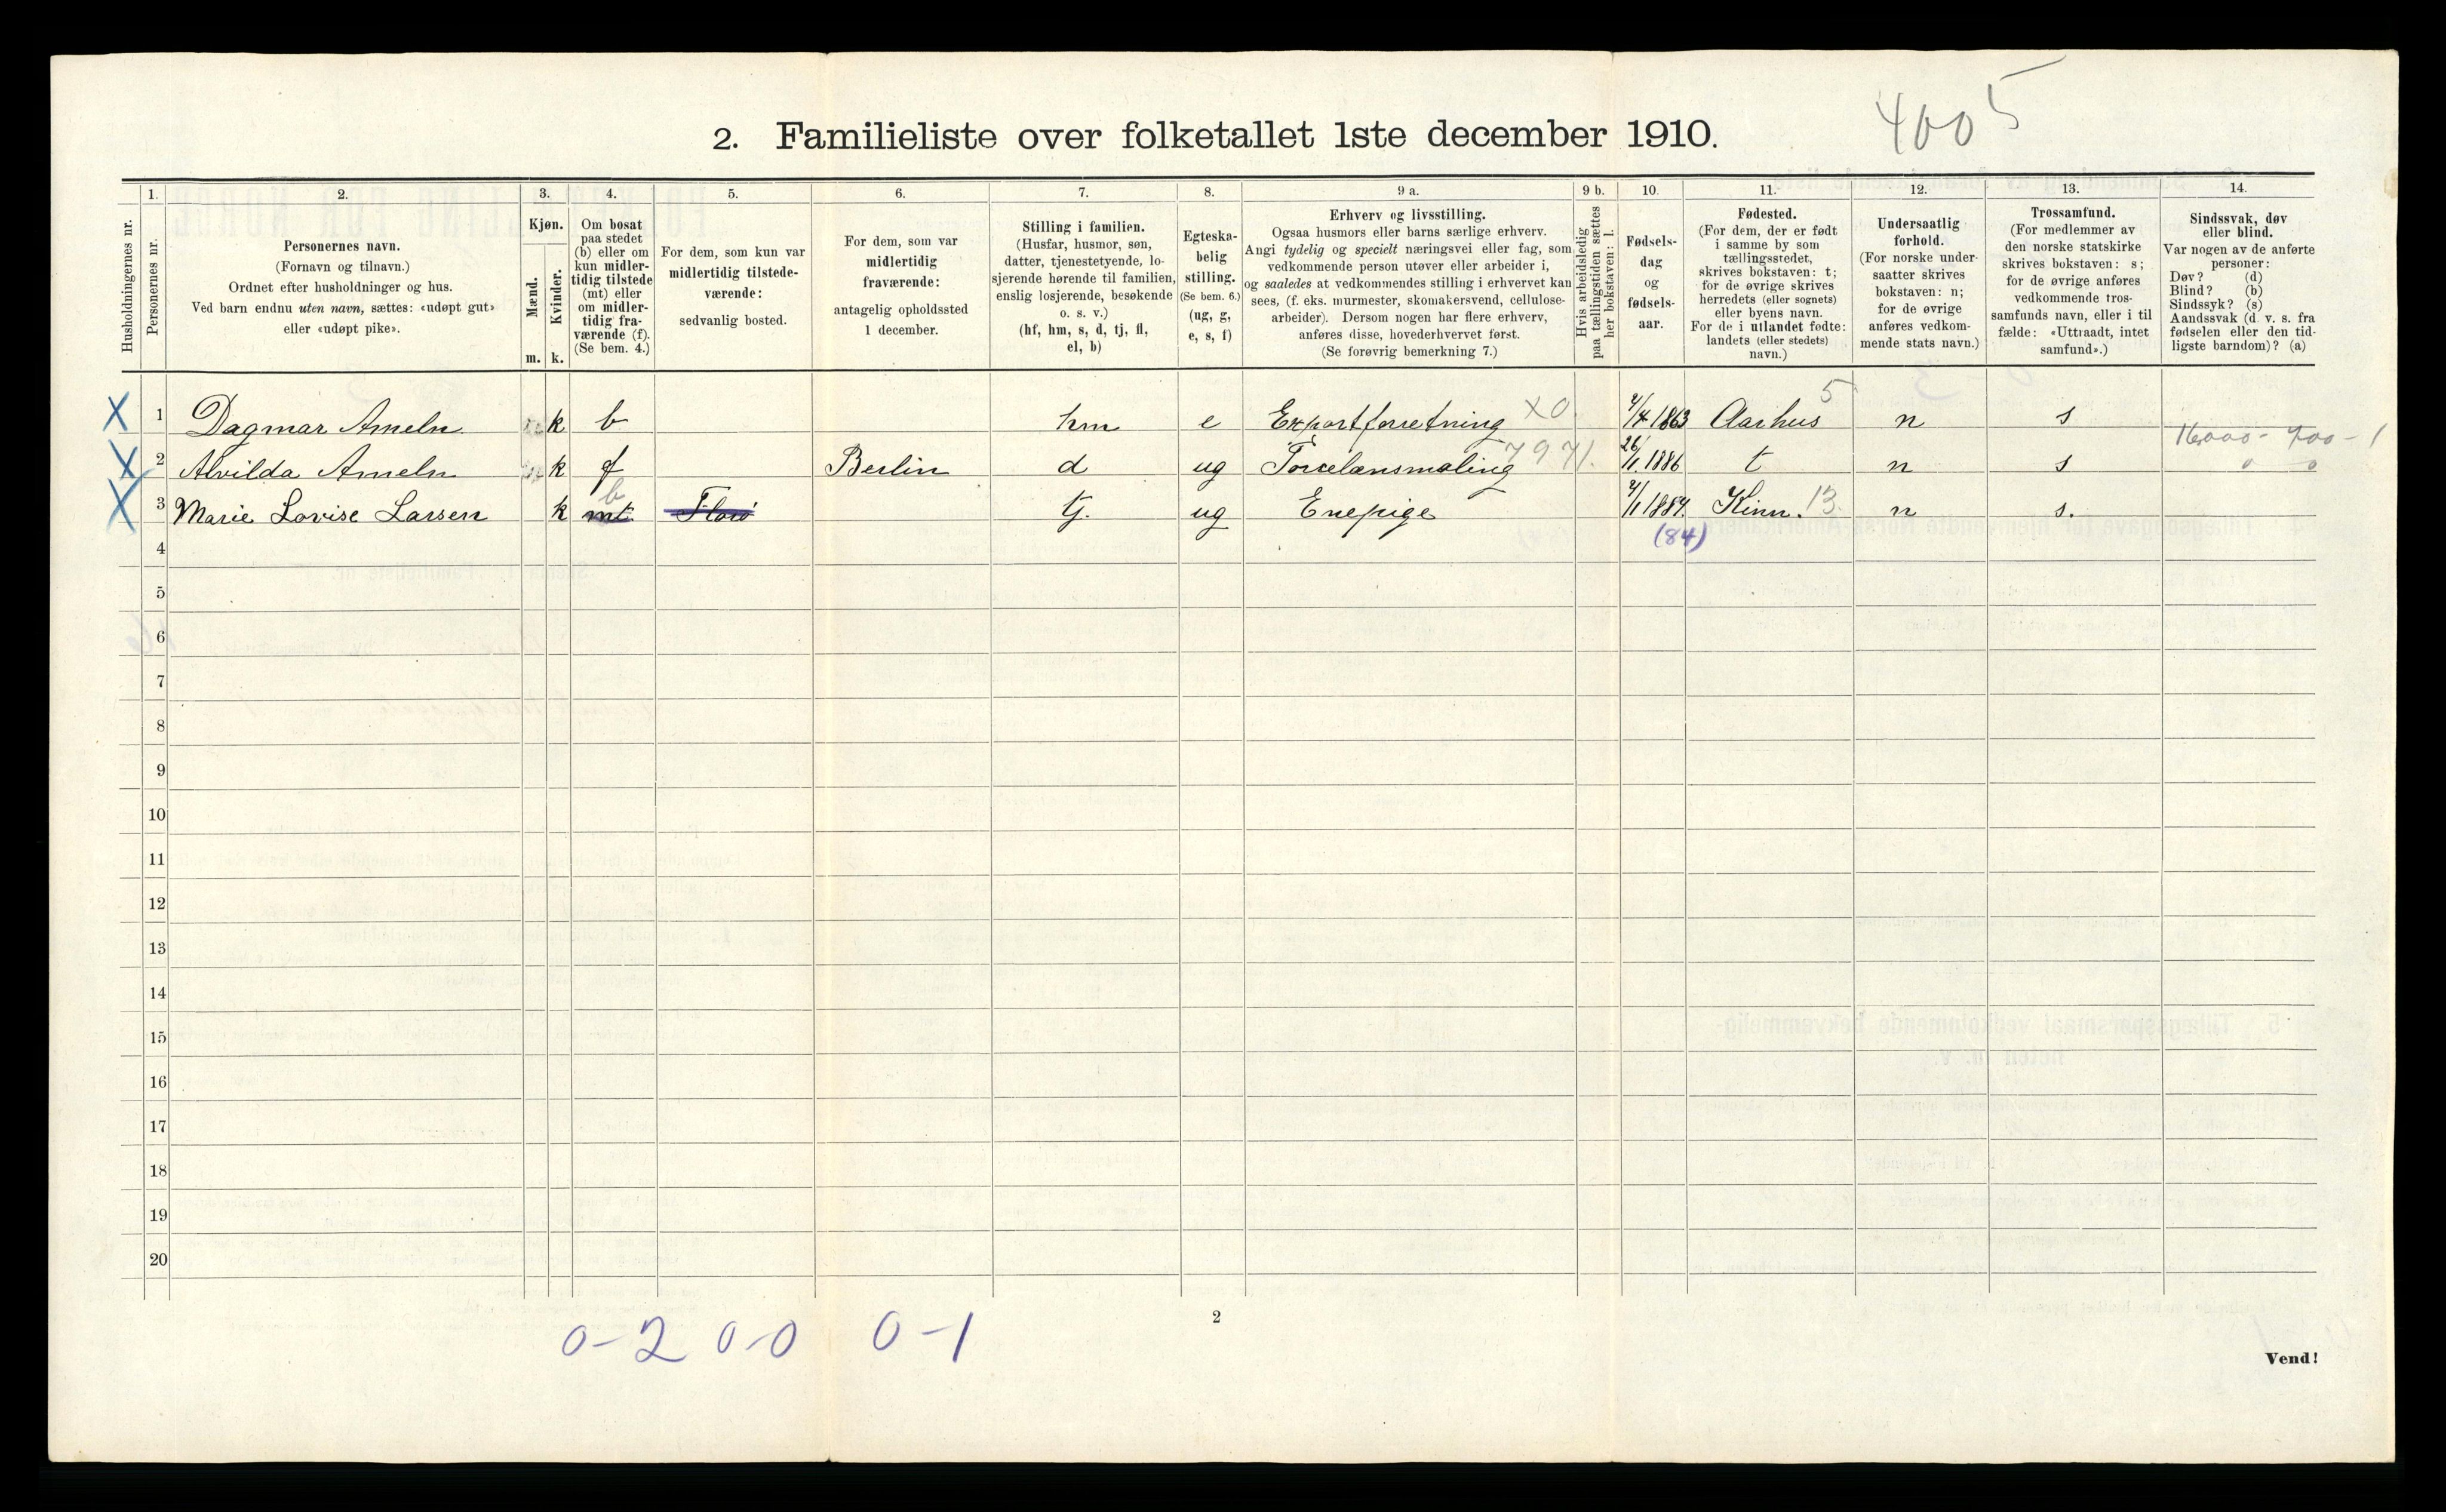 4005
2. Familieliste over folketallet 1ste december 1910.
1. 2. 3. 4. 5. 6. 7. 8. 9 a. 9 b. 10. 11. 12. 13. 14.
Husholdningernes nr.
Personernes nr.
Personernes navn.
(Fornavn og tilnavn.)
Ordnet efter husholdninger og hus.
Ved barn endnu uten navn, sættes: «udøpt gut»
eller «udøpt pike».
Kjøn.
Mænd.
Kvinder.
m. k.
Om bosat
paa stedet
(b) eller om
kun midler-
tidig tilstede
(mt) eller
om midler-
tidig fra-
værende (f).
(Se bem. 4.)
For dem, som kun var
midlertidig tilstede-
værende:
sedvanlig bosted.
For dem, som var
midlertidig
fraværende:
antagelig opholdssted
1 december.
Stilling i familien.
(Husfar, husmor, søn,
datter, tjenestetyende, lo-
sjerende hørende til familien,
enslig losjerende, besøkende
o. s. v.)
(hf, hm, s, d, tj, fl,
el, b)
Egteska-
belig
stilling.
(Se bem. 6.)
(ug, g,
e, s, f)
Erhverv og livsstilling.
Ogsaa husmors eller barns særlige erhverv.
Angi tydelig og specielt næringsvei eller fag, som
vedkommende person utøver eller arbeider i,
og saaledes at vedkommendes stilling i erhvervet kan
sees, (f. eks. murmester, skomakersvend, cellulose-
arbeider). Dersom nogen har flere erhverv,
anføres disse, hovederhvervet først.
(Se forøvrig bemerkning 7.)
Hvis arbeidsledig
paa tællingstiden sættes
her bokstaven: l.
Fødsels-
dag
og
fødsels-
aar.
Fødested.
(For dem, der er født
i samme by som
tællingsstedet,
skrives bokstaven: t;
for de øvrige skrives
herredets (eller sognets)
eller byens navn.
For de i utlandet fødte:
landets (eller stedets)
navn.)
Undersaatlig
forhold.
(For norske under-
saatter skrives
bokstaven: n;
for de øvrige
anføres vedkom-
mende stats navn.)
Trossamfund.
(For medlemmer av
den norske statskirke
skrives bokstaven: s;
for de øvrige anføres
vedkommende tros-
samfunds navn, eller i til
fælde: «Uttraadt, intet
samfund».)
Sindssvak, døv
eller blind.
Var nogen av de anførte
personer:
Døv? (d)
Blind? (b)
Sindssyk? (s)
Aandssvak (d. v. s. fra
fødselen eller den tid-
ligste barndom)? (a)
X 1 Dagmar Ameln k b hm e Exportforretning X0 4/4 1863 Aarhus 5 n s
16000 - 700 - 1
X 2 Alvilda Ameln k f Berlin d ug Porcelænsmaling 7971. 26/1. 1886 t n s 0 0
b
X 3 Marie Lovise Larsen k mt Florø tj. ug Enepige 4/1 1884. Kinn. 13. n s.
(84)
4
5
6
7
8
9
10
11
12
13
14
15
16
17
18
19
20
0-2 0-0 0-1
2
Vend!